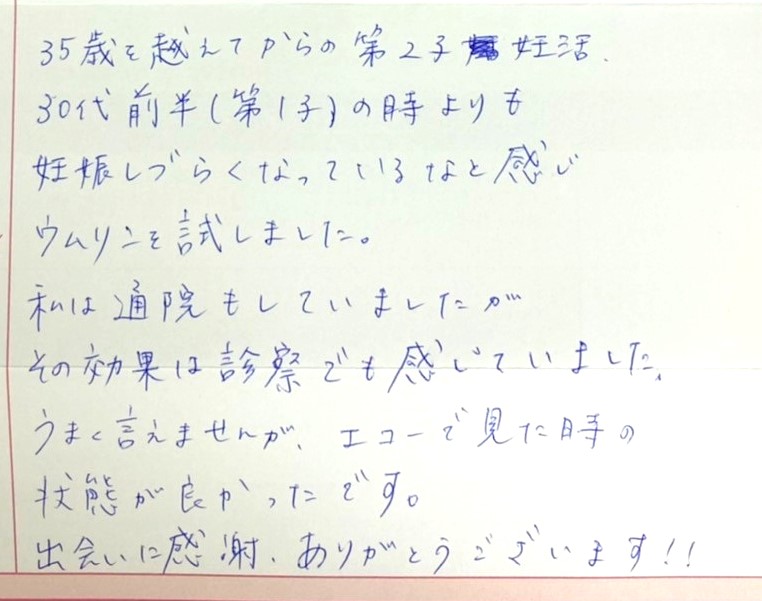 35歳を越えてからの第2子 妊活.
30代前半(第1子)の時よりも
妊娠しづらくなっているなと感じ
ウムリンを試しました。
私は通院もしていましたが
その効果は診察でも感じていました.
うまく言えませんが、エコーで見た時の
状態が良かったです。
出会いに感謝、ありがとうございます!!